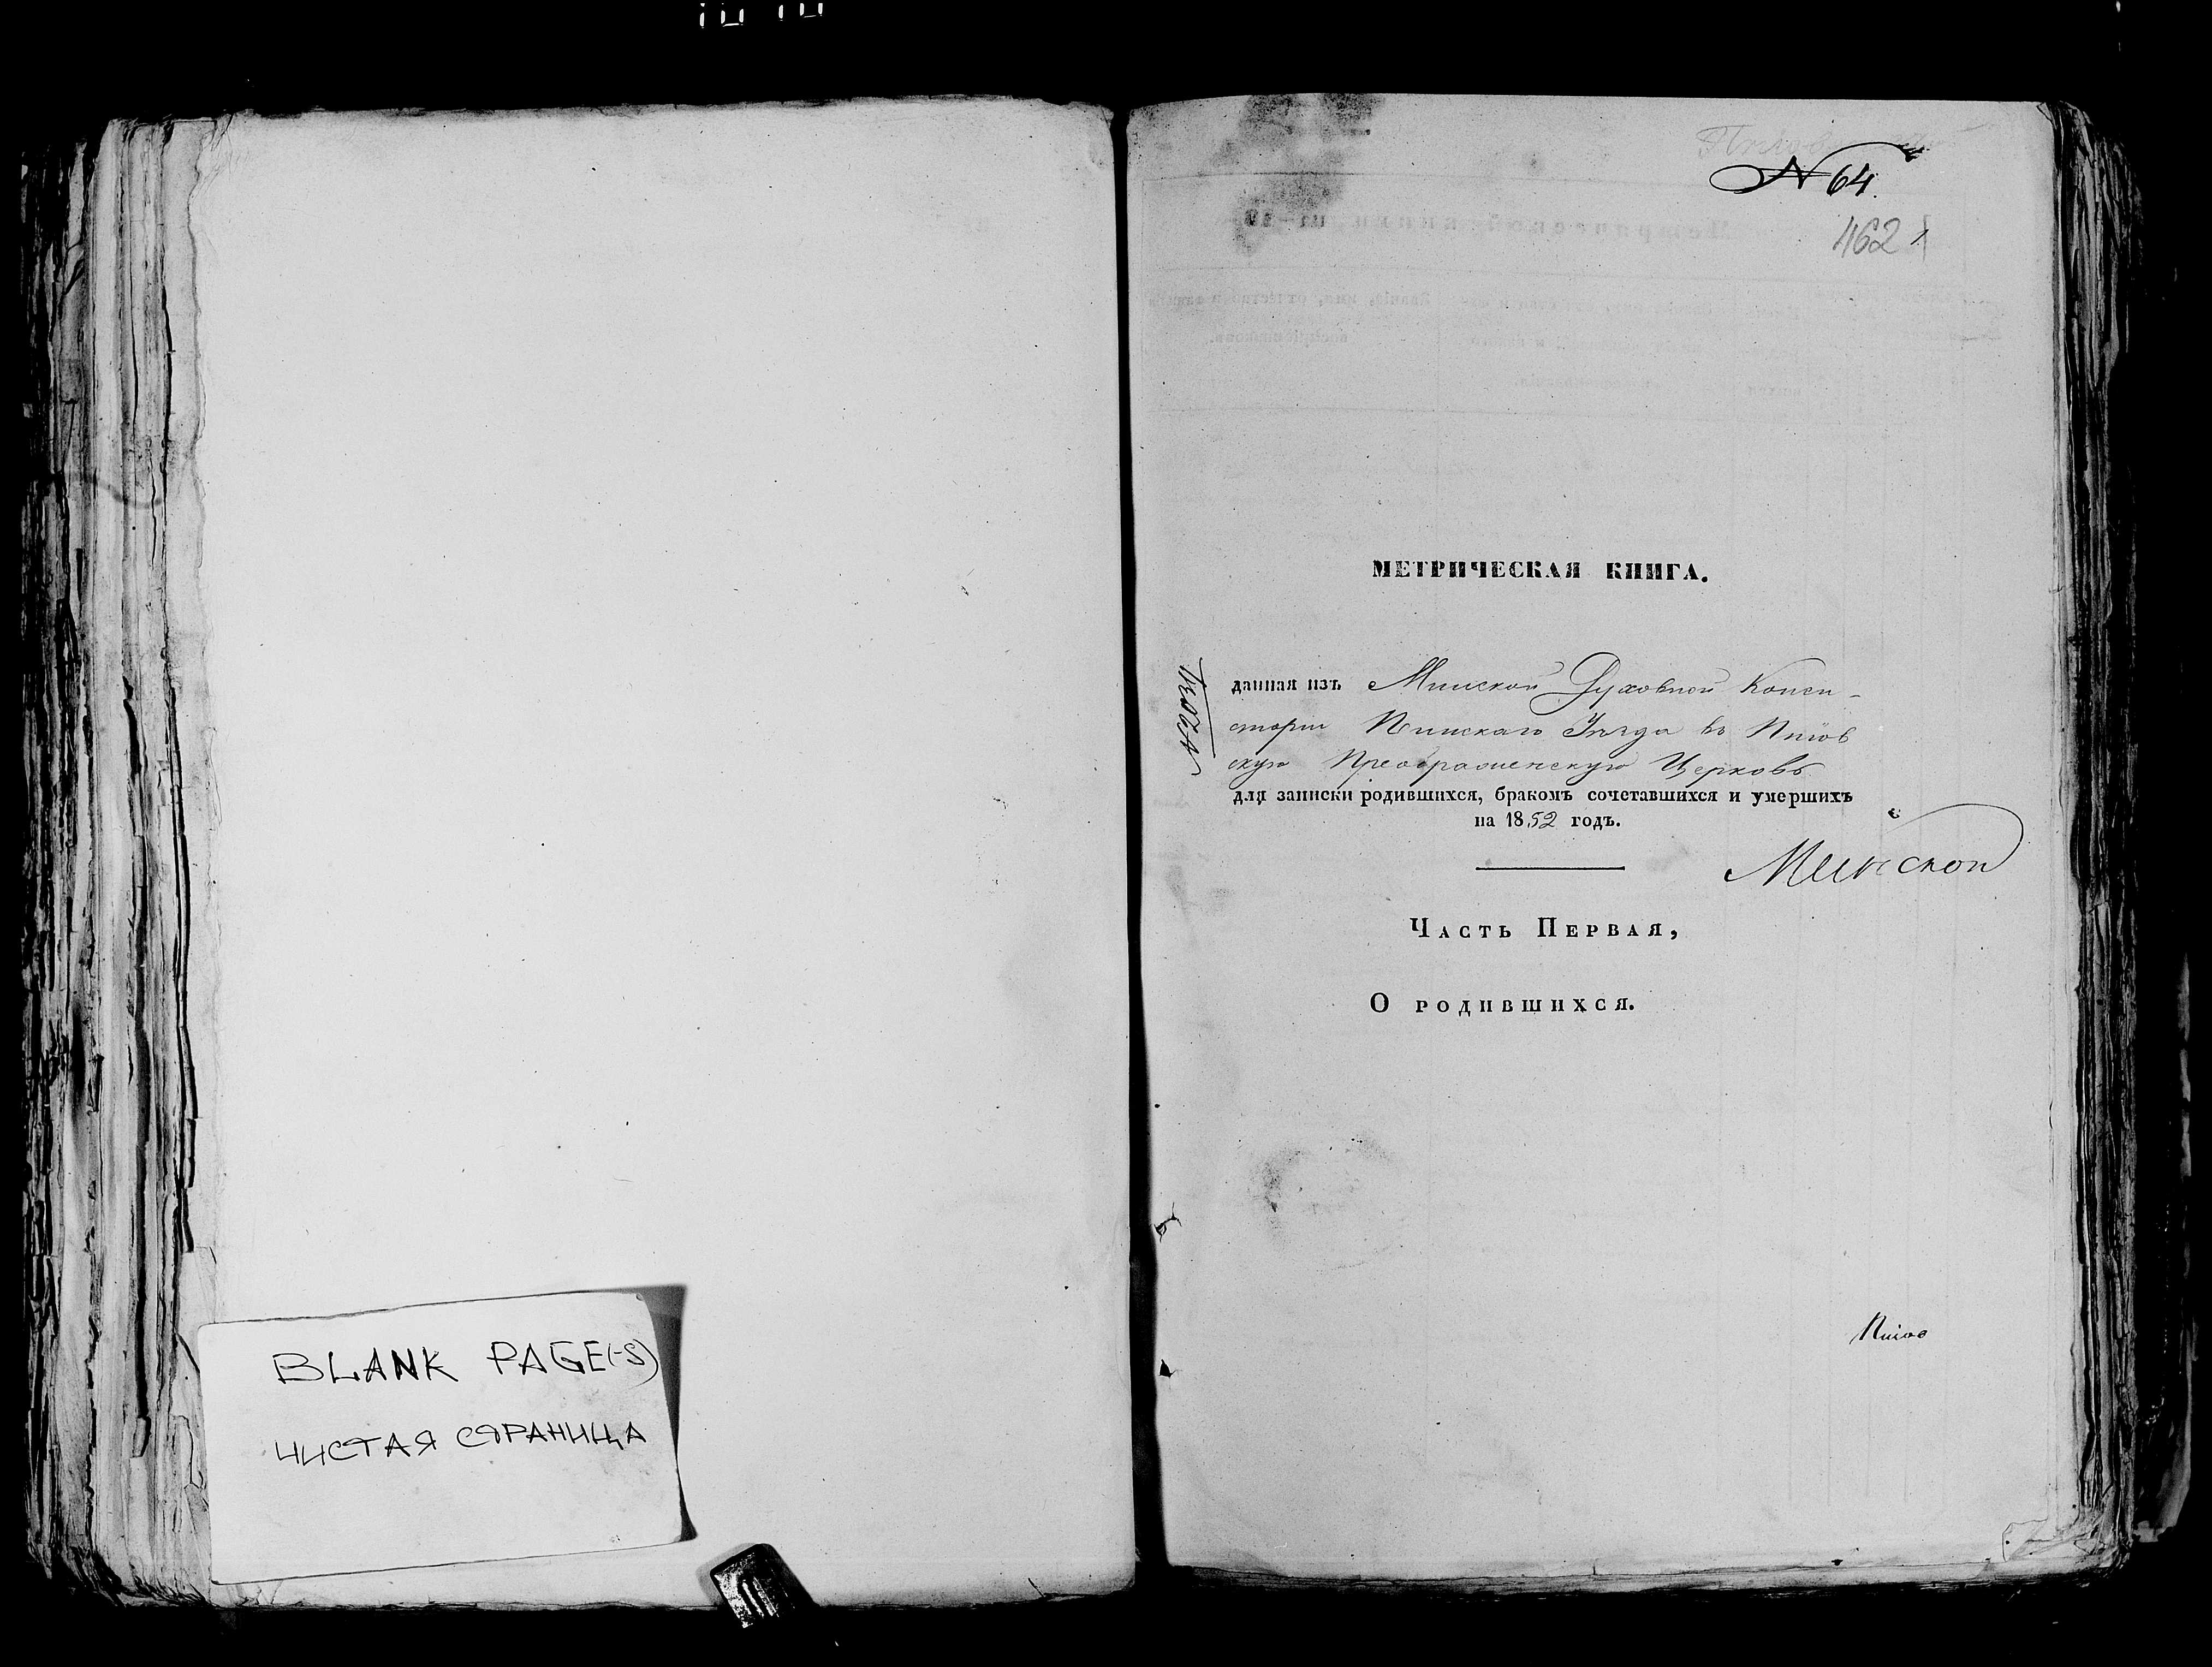 BLANK PAGE(-S)
ЧИСТАЯ СТРАНИЦА
N 64.
462
МЕТРИЧЕСКАЯ КНИГА.
данная изъ Минской Духовной Конси-
сторіи Пинскаго Уѣзда въ Пніов
скую Преображенскую Церковь
для записки родившихся, бракомъ сочетавшихся и умершихъ
на 1852 годъ.
Минской
Часть Первая,
О родившихся.
Пніов